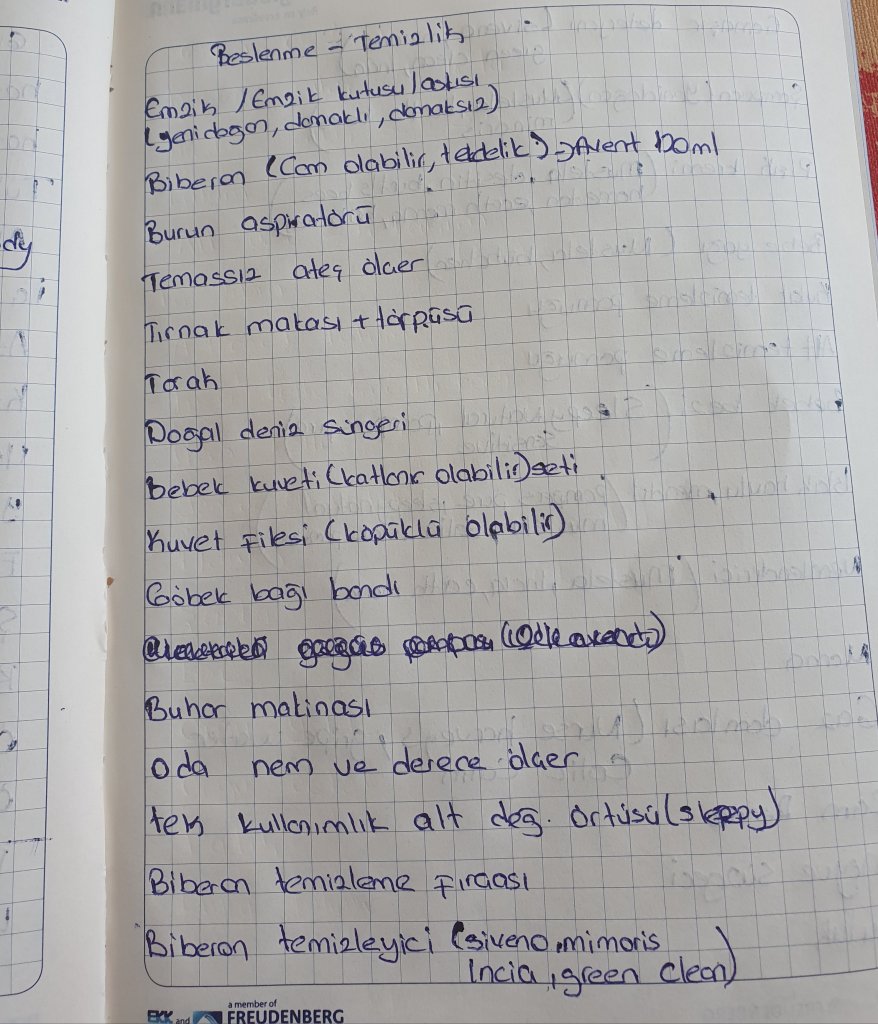 Beslenme - Temizlik
Emzik / Emzik kutusu / askısı
(yenidogan, damaklı, damaksız)
Biberon (Cam olabilir, tekdelik) → Avent 120ml
Burun aspiratörü
Temassız ateş ölçer
Tırnak makası + törpüsü
Tarak
Dogal deniz süngeri
Bebek küveti (katlanır olabilir) seti
Küvet Filesi (köpüklü olabilir)
Göbek bağı bandı
Buhar makinası
Oda nem ve derece ölçer
tek kullanımlık alt değ. örtüsü (sleepy)
Biberon temizleme Fırçası
Biberon temizleyici (siveno, mimoris
Incia, green clean)
dy
EKK and
a member of
FREUDENBERG